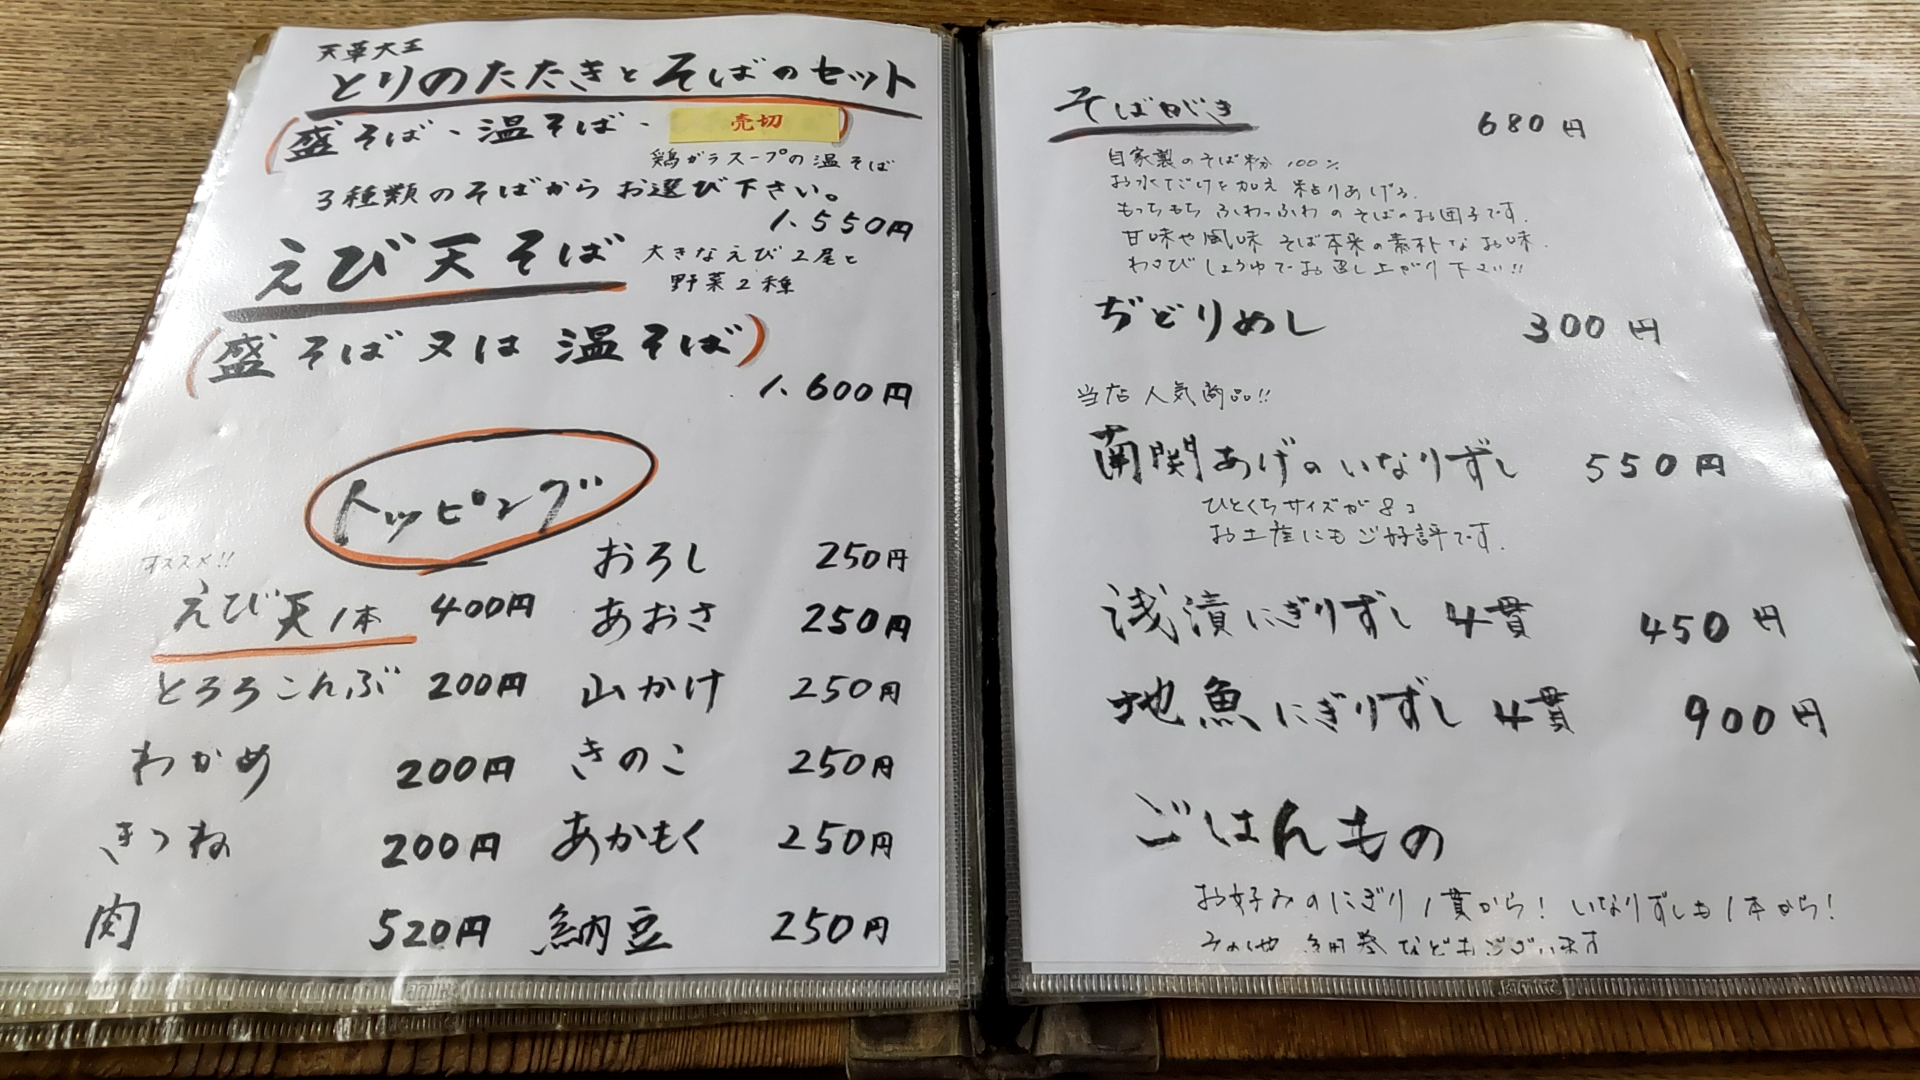 天草大王
とりのたたきとそばのセット
(盛そば、温そば、 売切 )
鶏ガラスープの温そば
3種類のそばからお選び下さい。
1.550円
えび天そば 大きなえび2尾と
野菜2種
(盛そば又は温そば)
1.600円
トッピング
オススメ!!
えび天1本 400円
とろろこんぶ 200円
わかめ 200円
きつね 200円
肉 520円
おろし 250円
あおさ 250円
山かけ 250円
きのこ 250円
あかもく 250円
納豆 250円
そばがき 680円
自家製のそば粉 100%
お水だけを加え 粘りあげる.
もっちもち ふわっふわ のそばのお団子です.
甘味や風味 そば本来の素朴なお味.
わさびしょうゆでお召し上がり下さい!!
ぢどりめし 300円
当店人気商品!!
南関あげのいなりずし 550円
ひとくちサイズが8コ
お土産にもご好評です.
浅漬にぎりずし 4貫 450円
地魚にぎりずし 4貫 900円
ごはんもの
お好みのにぎり1貫から! いなりずしも1本から!
その他 細巻などもございます